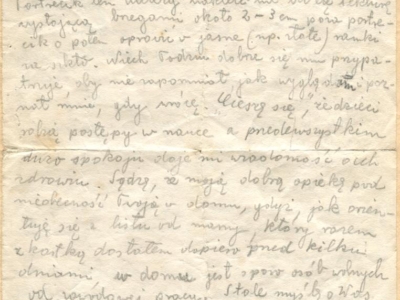 Portrecik ten
wystającą brzegami około 2-3 cm poza portre-
cik a potem oprawić w jasne (np. złote) ramki
za szkło. Niech Tadziu dobrze się mu przypa-
truje, aby nie zapomniał, jak wyglądam i poz-
nał mnie, gdy wrócę. Cieszę się, że dzieci
robią postępy w nauce a przedewszystkim
dużo spokoju daje mi wiadomość o ich
zdrowiu. Sądzę, że mają dobrą opiekę pod
nieobecność Twoją w domu, gdyż, jak orien-
tuję się z listu od mamy, który razem
z kartką dostałem dopiero przed kilku
dniami, w domu jest sporo osób wolnych
od pracy. Stale myślę o Was